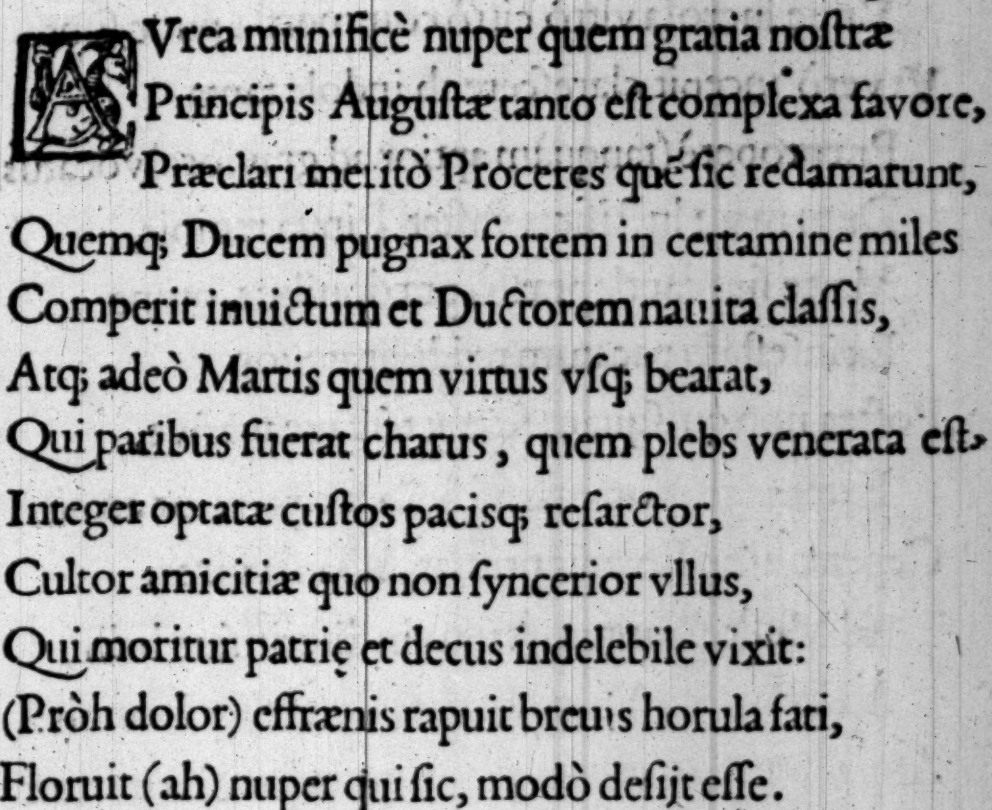 AVrea munificè nuper quem gratia noſtræ
Principis Auguſtæ tanto eſt complexa favore,
Præclari meritò Proceres quẽ ſic redamarunt,
Quemq; Ducem pugnax fortem in certamine miles
Comperit inuictum et Ductorem nauita claſſis,
Atq; adeò Martis quem virtus vſq; bearat,
Qui paribus fuerat charus, quem plebs venerata eſt,
Integer optatæ cuſtos pacisq; reſarctor,
Cultor amicitiæ quo non ſyncerior vllus,
Qui moritur patrię et decus indelebile vixit:
(Pròh dolor) effrænis rapuit breuis horula fati,
Floruit (ah) nuper qui ſic, modò deſijt eſſe.